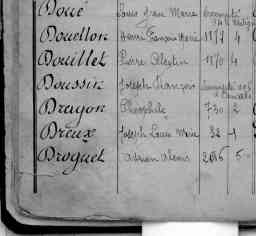 Doué Louis Jean Marie
Douellon Henri François Marie 1177 4
Douillet Pierre Célestin 1170 4
Doussin Joseph François
Dragon Théophile 730 2
Dreux Joseph Louis Marie 32 1
Droguet Adrien Alexis 2616 5